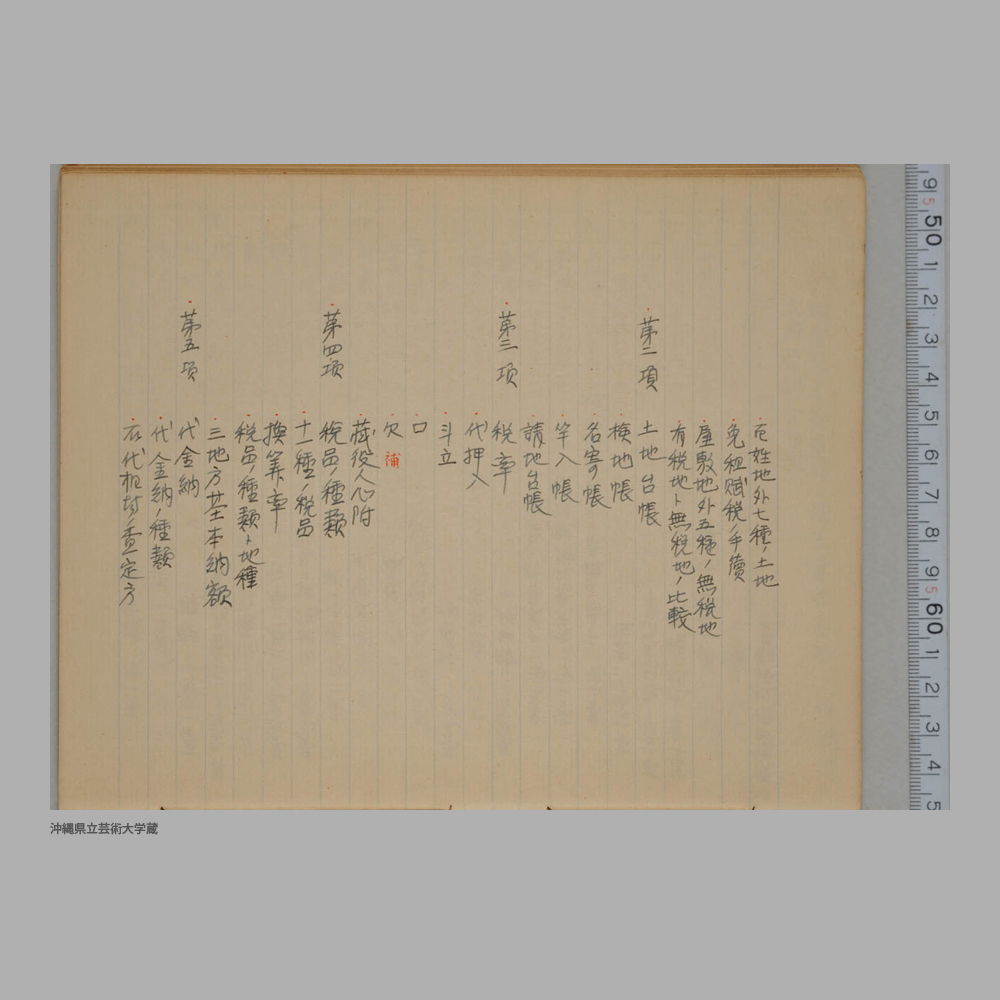 百姓地外七種ノ土地
免租賦税ノ手續
屋敷地外五種ノ無税地
有税地ト無税地ノ比較
第二項
土地台帳
検地帳
名寄帳
竿入帳
請地台帳
第三項
税率
代押入
斗立
口
欠補
蔵役人心附
第四項
税品ノ種類
十一種ノ税品
換算率
税品ノ種類ト地種
三地方基本納額
第五項
代金納
代金納ノ種類
石代相場ノ査定方
沖縄県立芸術大学蔵
9
5
50
1
2
3
4
5
6
7
8
9
5
60
1
2
3
4
5